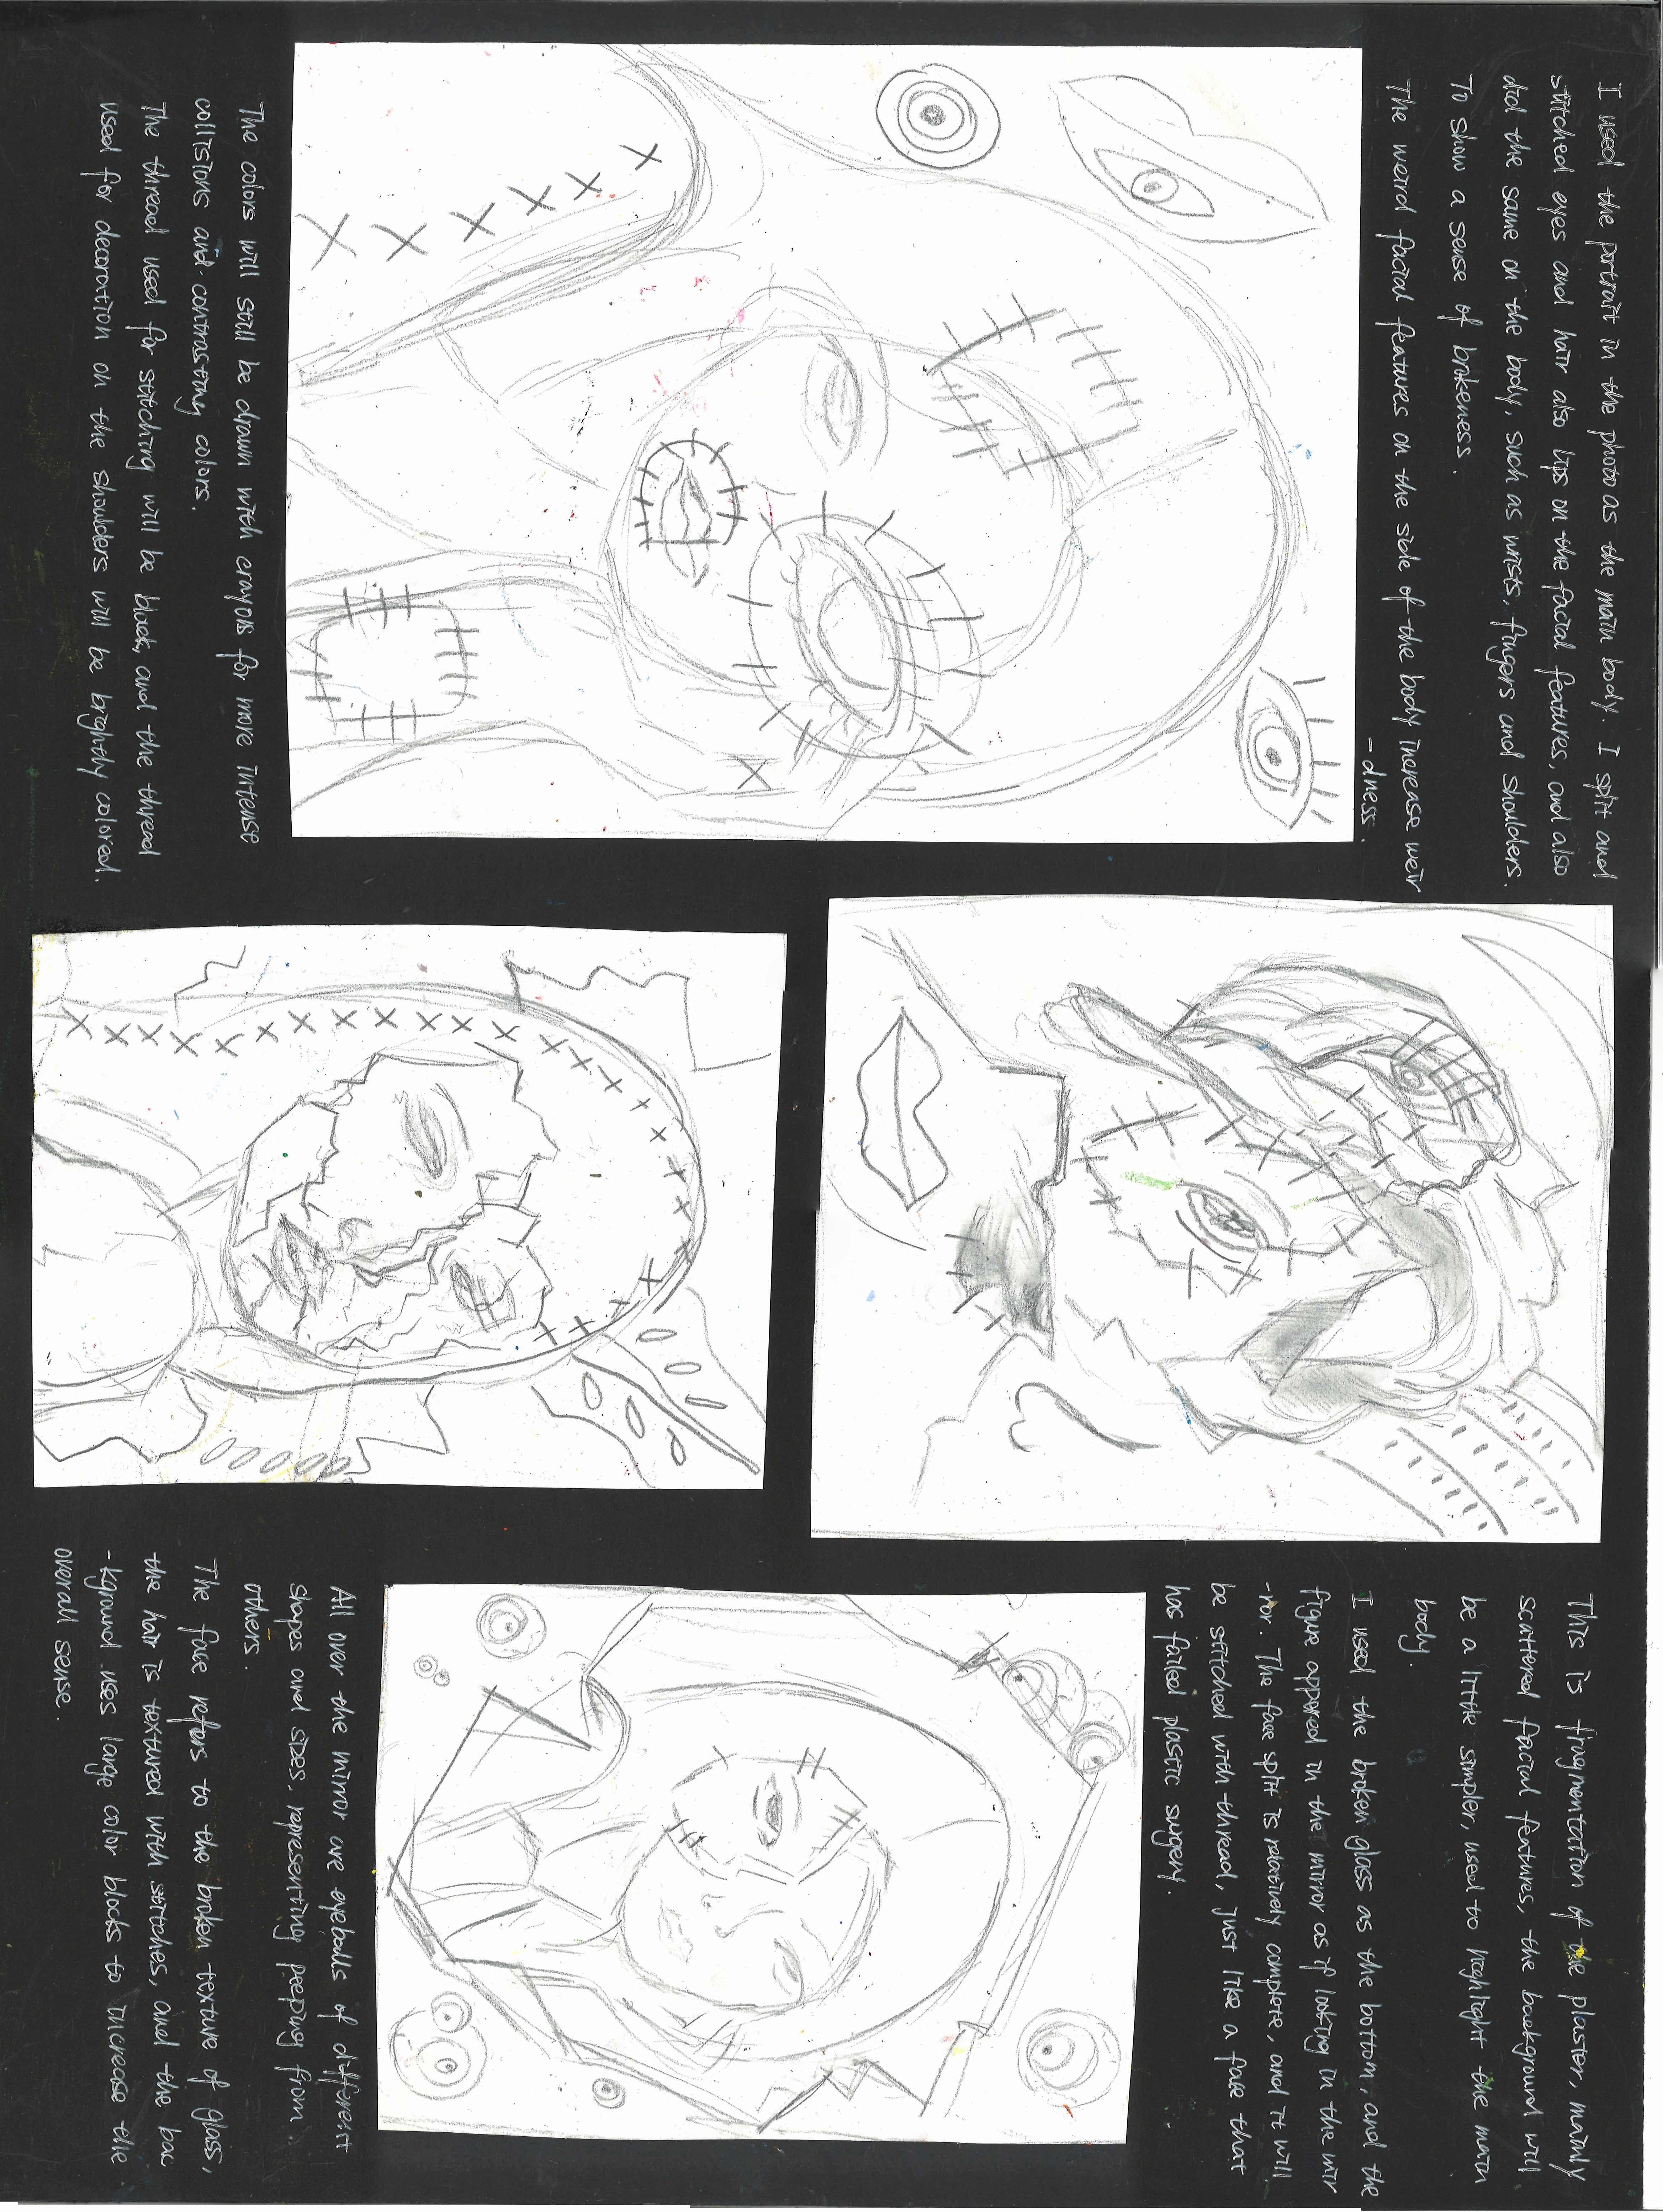 I used the portrait in the photo as the main body. I split and
stitched eyes and hair also lips on the facial features, and also
did the same on the body, such as wrists, fingers and shoulders.
To show a sense of brokeness.
The weird facial features on the side of the body increase weir
-dness.
The colors will still be drawn with crayons for more intense
collstons and contrasting colors.
The thread used for stitching will be black, and the thread
used for decoration on the shoulders will be brightly colored.
This is fragmentation of the plaster, mainly
scattered facial features, the background will
be a little simpler, used to highlight the main
body.
I used the broken glass as the bottom, and the
figure appered in the mirror as if looking in the mir
-ror. The face split is relatively complete, and it will
be stitched with thread, just like a face that
has failed plastic sugery.
All over the mirror are eyeballs of different
shapes and sizes, representing peeping from
others.
The face refers to the broken texture of glass,
the hair is textured with stitches, and the bac
-kground uses large color blocks to increase the
overall sense.